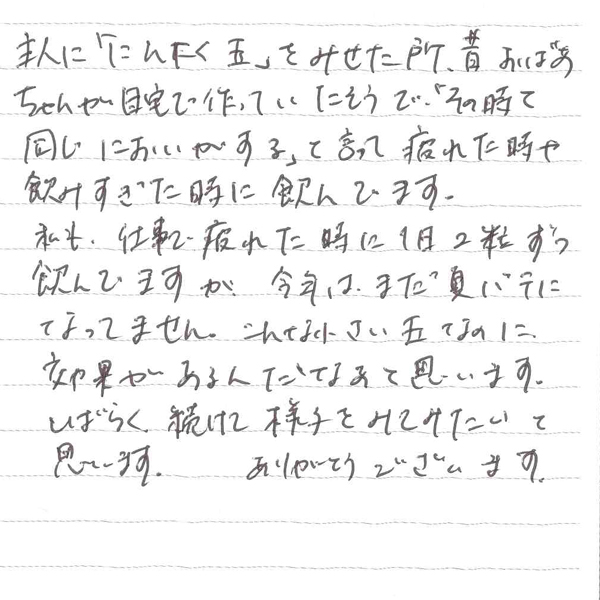 主人に「にんにく玉」をみせた所、昔おばあ
ちゃんが自宅で作っていたそうで、「その時と
同じにおいがする」と言って疲れた時や
飲みすぎた時に飲んでます。
私も、仕事で疲れた時に1日2粒ずつ
飲んでますが、今年は、まだ夏バテに
なってません。こんな小さい玉なのに、
効果があるんだなあと思います。
しばらく続けて様子をみてみたいと
思います。 ありがとうございます。